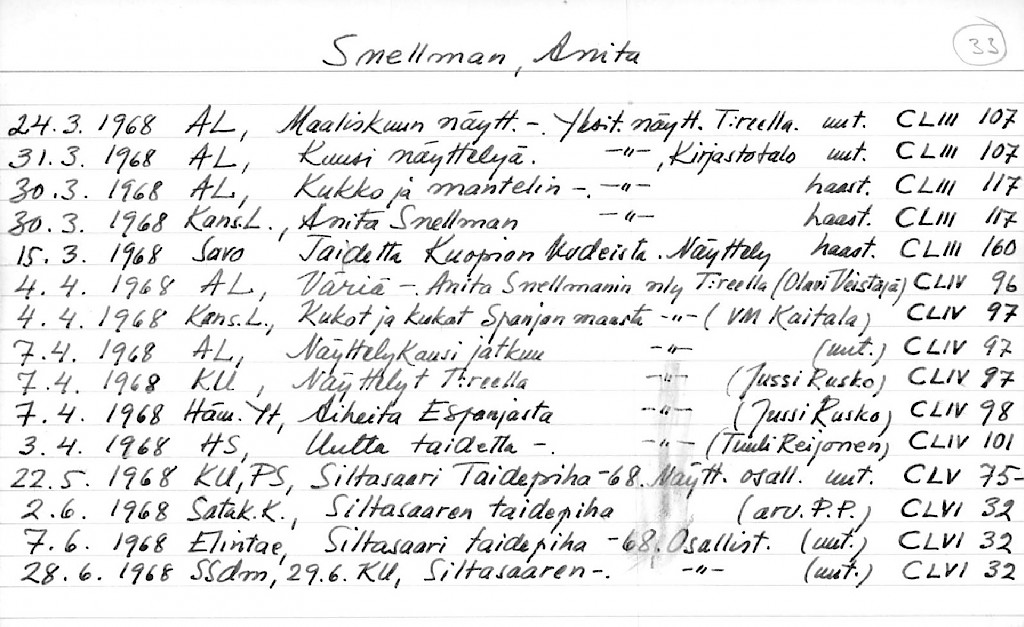 Snellman, Anita 33
24.3. 1968 AL, Maaliskuun näytt. -. Yksit. näytt. T:reella. uut. CLIII 107
31.3. 1968 AL, Kuusi näyttelyä. -"-, Kirjastotalo uut. CLIII 107
30.3. 1968 AL, Kukko ja mantelin -. -"- haast. CLIII 117
30.3. 1968 Kans.L., Anita Snellman -"- haast. CLIII 117
15.3. 1968 Savo Taidetta Kuopion Uudeista. Näyttely haast. CLIII 160
4.4. 1968 AL, Väriä -. Anita Snellmanin nly T:reella (Olavi Veistäjä) CLIV 96
4.4. 1968 Kans.L., Kukot ja kukat Spanjan maasta -"- (VM Kaitala) CLIV 97
7.4. 1968 AL, Näyttelykausi jatkuu -"- (uut.) CLIV 97
7.4. 1968 KU, Näyttelyt T:reella -"- (Jussi Rusko) CLIV 97
7.4. 1968 Häm. Yt, Aiheita Espanjasta -"- (Jussi Rusko) CLIV 98
3.4. 1968 HS, Uutta taidetta - -"- (Tuuli Reijonen) CLIV 101
22.5. 1968 KU, PS, Siltasaari Taidepiha -68. Näytt. osall. uut. CLV 75-
2.6. 1968 Satak.K., Siltasaaren taidepiha (arv. P.P.) CLVI 32
7.6. 1968 Elintae, Siltasaari taidepiha -68. Osallist. (uut.) CLVI 32
28.6. 1968 SSdm, 29.6. KU, Siltasaaren -. -"- (uut.) CLVI 32